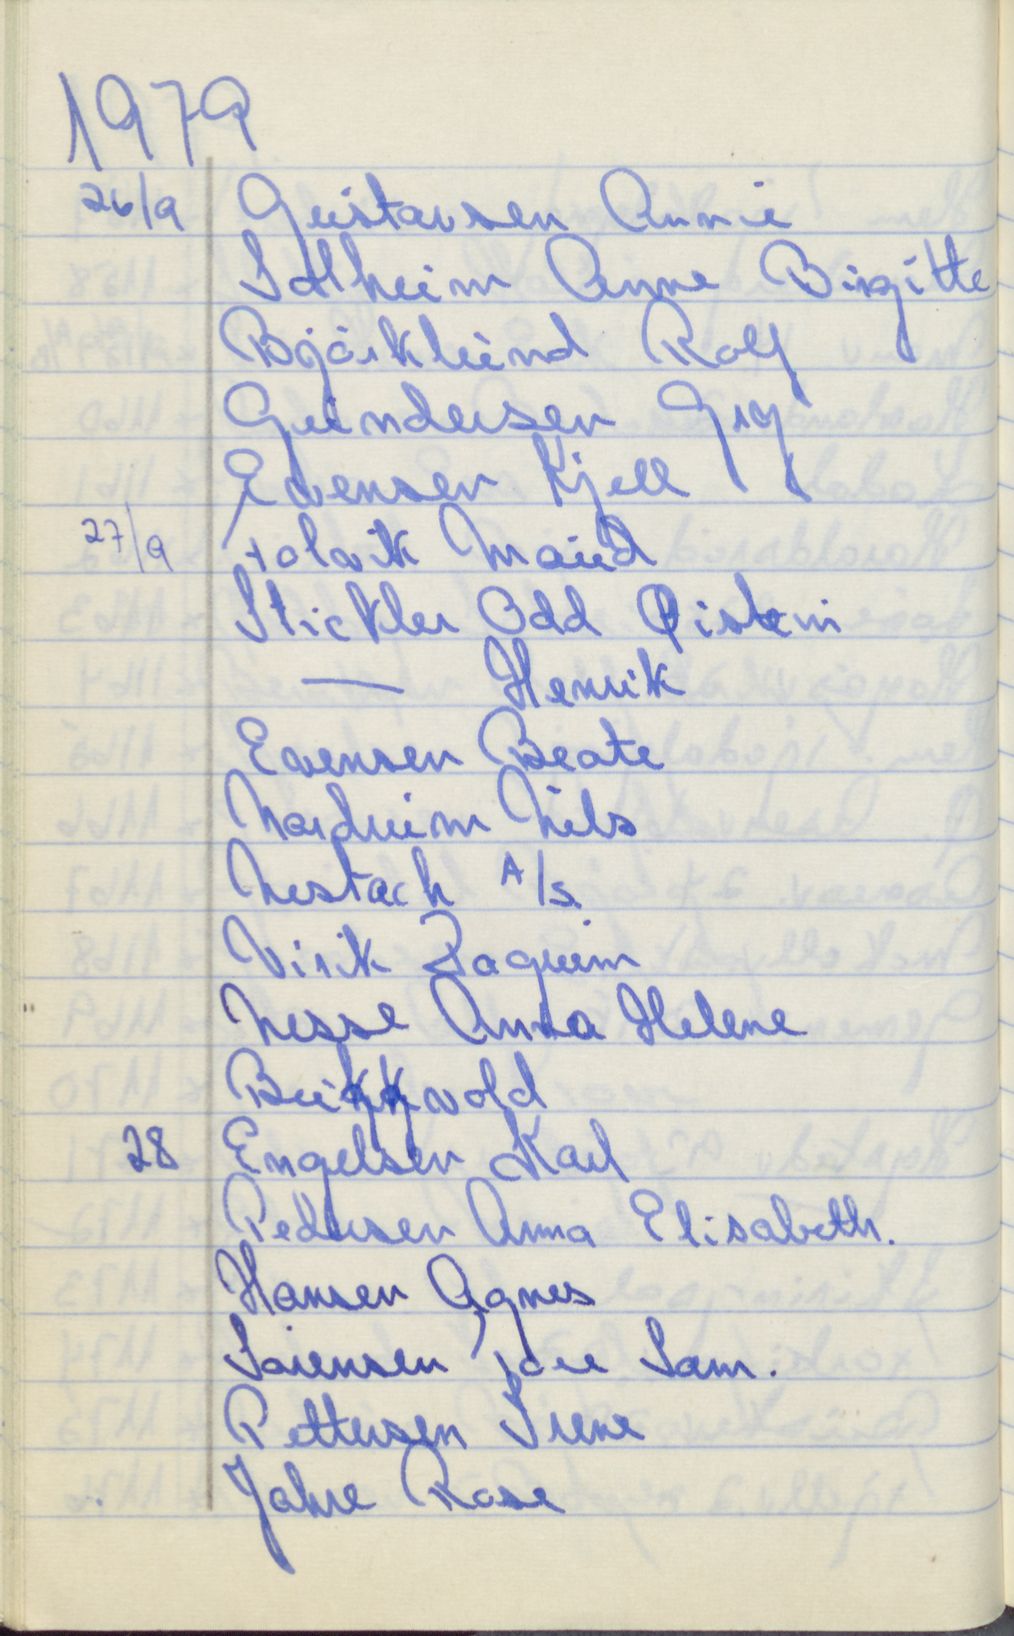 1979
26/9 Gustavsen Annie
Solheim Anne Birgitte
Bjørklund Rolf
Gundersen Gry
Evensen Kjell
27/9 Holvik Maud
Stickler Odd Øistein
— Henrik
Evensen Beate
Nordheim Nils
Nestach A/S
Virik
Nesse Anna Helene
28 Engelsen Karl
Pedersen Anna Elisabeth.
Hansen Agnes
Sørensen Sam.
Pettersen Irene
Jahre Rose